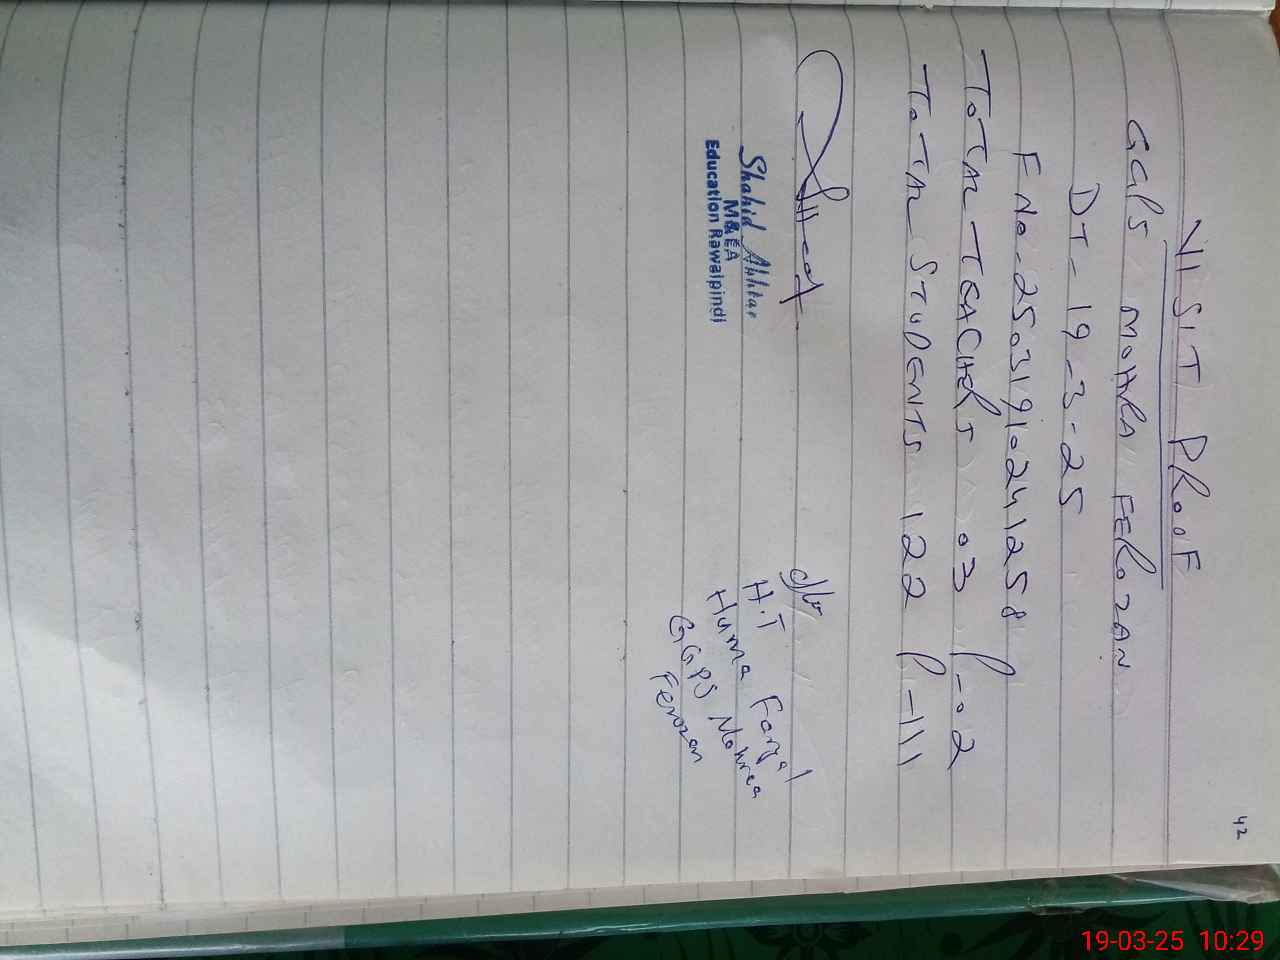 42
VISIT PROOF
GGPS MOHRA FEROZAN
DT-19-3-25
FNo-25031910241258
TOTAL TEACHERS 03 P-02
TOTAL STUDENTS 122 P-111
Shahid Akhtar
M&EA
Education Rawalpindi
H.T
Huma Faryal
GGPS Mohrea
Ferozan
19-03-25 10:29